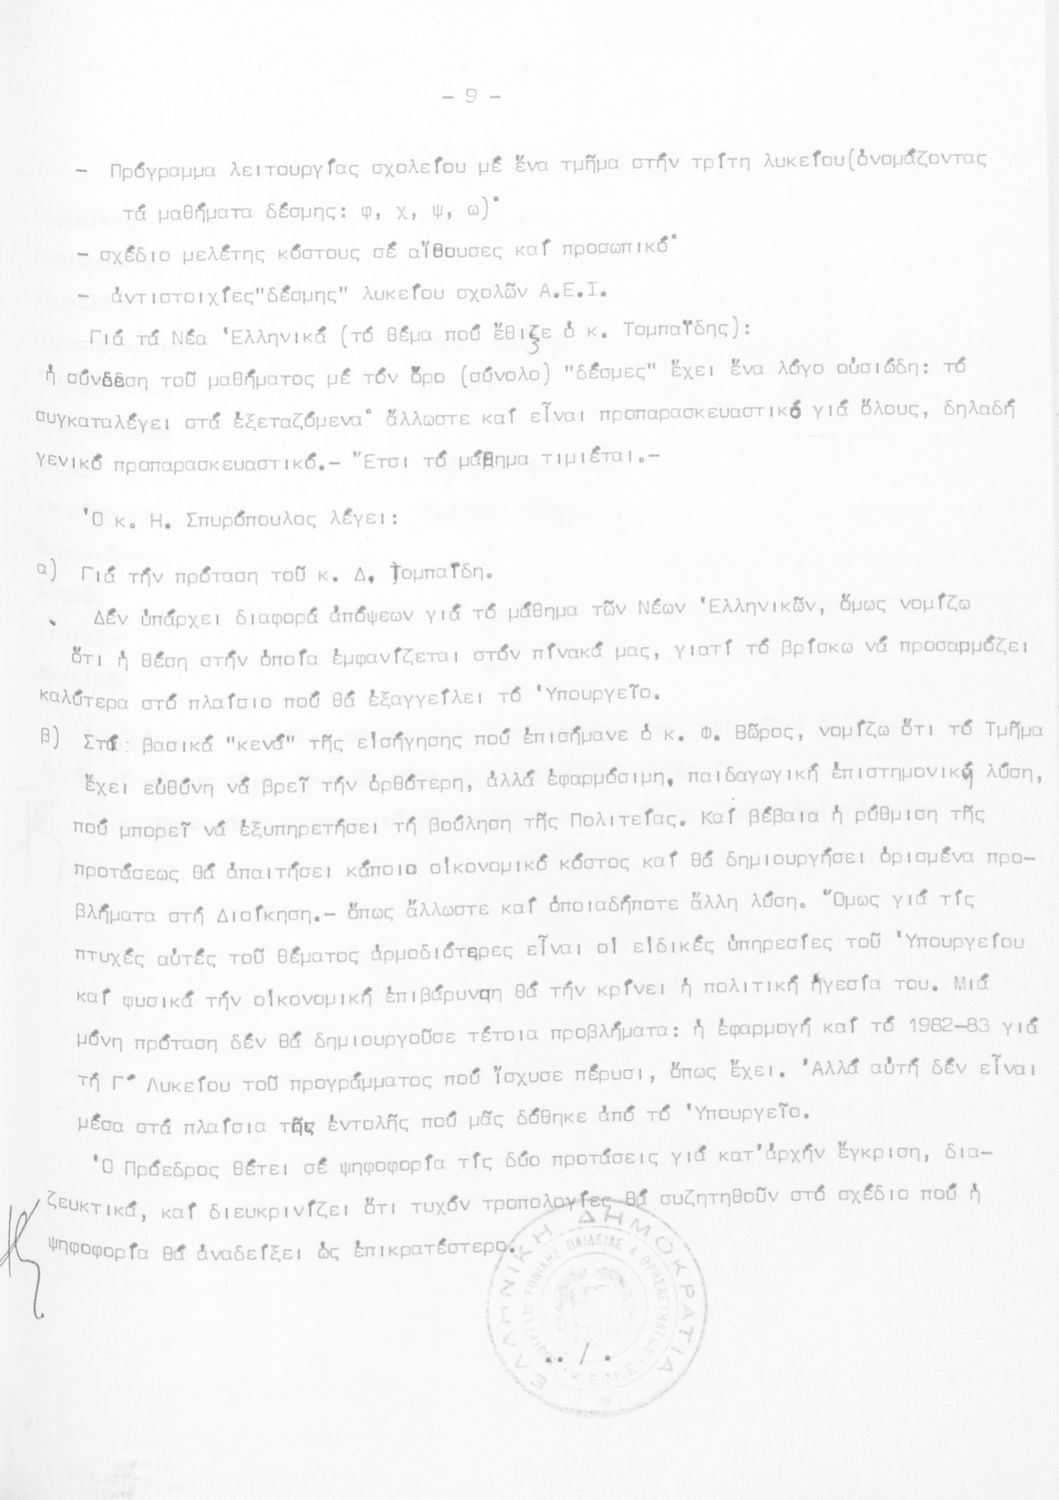 - 9 -
- Πρόγραμμα λειτουργίας σχολείου μέ ἕνα τμῆμα στήν τρίτη λυκείου(ὀνομάζοντας
τά μαθήματα δέσμης: φ, χ, ψ, ω)·
- σχέδιο μελέτης κόστους σέ αἴθουσες καί προσωπικό·
- ἀντιστοιχίες"δέσμης" λυκείου σχολῶν Α.Ε.Ι.
Γιά τά Νέα Ἑλληνικά (τό θέμα πού ἔθιξε ὁ κ. Τομπαΐδης):
ἡ σύνδεση τοῦ μαθήματος μέ τόν ὅρο (σύνολο) "δέσμες" ἔχει ἕνα λόγο οὐσιώδη: τό
συγκαταλέγει στά ἐξεταζόμενα· ἄλλωστε καί εἶναι προπαρασκευαστικό γιά ὅλους, δηλαδή
γενικό προπαρασκευαστικό.- Ἔτσι τό μάθημα τιμιέται.-
Ὁ κ. Η. Σπυρόπουλος λέγει:
α) Γιά τήν πρόταση τοῦ κ. Δ. Τομπαΐδη.
Δέν ὑπάρχει διαφορά ἀπόψεων γιά τό μάθημα τῶν Νέων Ἑλληνικῶν, ὅμως νομίζω
ὅτι ἡ θέση στήν ὁποία ἐμφανίζεται στόν πίνακά μας, γιατί τό βρίσκω νά προσαρμόζει
καλύτερα στό πλαίσιο πού θά ἐξαγγείλει τό Ὑπουργεῖο.
β) Στά: βασικά "κενά" τῆς εἰσήγησης πού ἐπισήμανε ὁ κ. Φ. Βῶρος, νομίζω ὅτι τό Τμῆμα
ἔχει εὐθύνη νά βρεῖ τήν ὀρθότερη, ἀλλά ἐφαρμόσιμη, παιδαγωγική ἐπιστημονική λύση,
πού μπορεῖ νά ἐξυπηρετήσει τή βούληση τῆς Πολιτείας. Καί βέβαια ἡ ρύθμιση τῆς
προτάσεως θά ἀπαιτήσει κάποιο οἰκονομικό κόστος καί θά δημιουργήσει ὁρισμένα προ-
βλήματα στή Διοίκηση.- ὅπως ἄλλωστε καί ὁποιαδήποτε ἄλλη λύση. Ὅμως γιά τίς
πτυχές αὐτές τοῦ θέματος ἁρμοδιότερες εἶναι οἱ εἰδικές ὑπηρεσίες τοῦ Ὑπουργείου
καί φυσικά τήν οἰκονομική ἐπιβάρυνση θά τήν κρίνει ἡ πολιτική ἡγεσία του. Μιά
μόνη πρόταση δέν θά δημιουργοῦσε τέτοια προβλήματα: ἡ ἐφαρμογή καί τό 1982-83 γιά
τή Γ' Λυκείου τοῦ προγράμματος πού ἴσχυσε πέρυσι, ὅπως ἔχει. Ἀλλά αὐτή δέν εἶναι
μέσα στά πλαίσια τῆς ἐντολῆς πού μᾶς δόθηκε ἀπό τό Ὑπουργεῖο.
Ὁ Πρόεδρος θέτει σέ ψηφοφορία τίς δύο προτάσεις γιά κατ'ἀρχήν ἔγκριση, δια-
ζευκτικά, καί διευκρινίζει ὅτι τυχόν τροπολογίες θά συζητηθοῦν στό σχέδιο πού ἡ
ψηφοφορία θά ἀναδείξει ὡς ἐπικρατέστερο.
ΕΛΛΗΝΙΚΗ ΔΗΜΟΚΡΑΤΙΑ
ΥΠΟΥΡΓΕΙΟΝ ΕΘΝΙΚΗΣ ΠΑΙΔΕΙΑΣ & ΘΡΗΣΚΕΥΜΑΤΩΝ
Κ.Ε.Μ.Ε.
../.